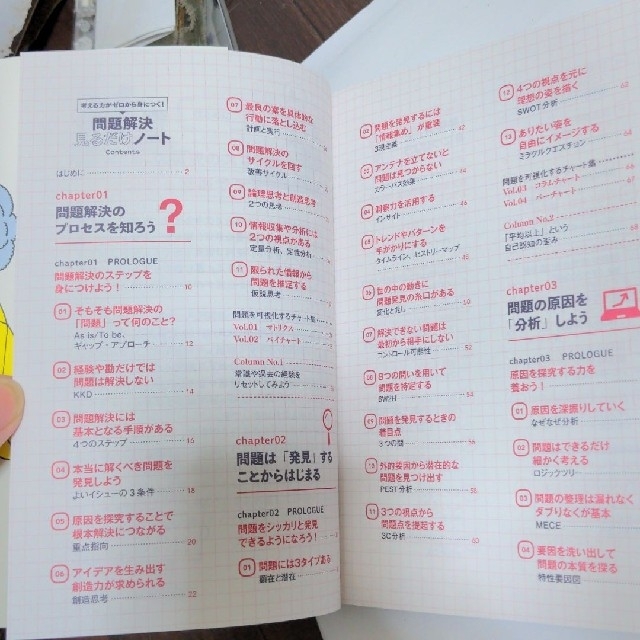 考える力がゼロから身につく!
問題解決
見るだけノート
Contents
はじめに 2
chapter01
問題解決の
プロセスを知ろう
?
chapter01 PROLOGUE
問題解決のステップを
身につけよう! 10
01 そもそも問題解決の
「問題」って何のこと?
As is/To be、
ギャップ・アプローチ 12
02 経験や勘だけでは
問題は解決しない
KKD 14
03 問題解決には
基本となる手順がある
4つのステップ 16
04 本当に解くべき問題を
発見しよう
よいイシューの3条件 18
05 原因を探究することで
根本解決につながる
重点指向 20
06 アイデアを生み出す
創造力が求められる
創造思考 22
07 最良の案を具体的な
行動に落とし込む
計画と実行
08 問題解決の
サイクルを回す
改善サイクル
09 論理思考と創造思考
2つの思考
10 情報収集や分析には
2つの視点がある
定量分析、定性分析
11 限られた情報から
問題を推定する
仮説思考
問題を可視化するチャート集
Vol.01 マトリクス
Vol.02 ペイチャート
Column No.1
常識や過去の経験を
リセットしてみよう
chapter02
問題は「発見」する
ことからはじまる
chapter02 PROLOGUE
問題をシッカリと発見
できるようになろう!
01 問題には3タイプある
顕在と潜在
02 問題を発見するには
「情報集め」が重要
3現主義 42
03 アンテナを立てないと
問題は見つからない
カラーバス効果
04 洞察力を活用する
インサイト
05 トレンドやパターンを
手がかりにする
タイムライン、ヒストリーマップ
06 世の中の動きに
問題発見の糸口がある
変化と兆し
07 解決できない問題は
最初から相手にしない
コントロール可能性 52
08 8つの問いを用いて
問題を特定する
5W3H 54
09 問題を発見するときの
着目点
3つの間 56
10 外的要因から潜在的な
問題を見つけ出す
PEST分析 58
11 3つの視点から
問題点を推定する
3C分析 60
12 4つの視点を元に
理想の姿を描く
SWOT分析 62
13 ありたい姿を
自由にイメージする
ミラクルクエスチョン 64
問題を可視化するチャート集
Vol.03 コラムチャート 66
Vol.04 バーチャート 67
Column No.2
「平均以上」という
自己認知の歪み 68
chapter03
問題の原因を
「分析」しよう
chapter03 PROLOGUE
原因を探究する力を
養おう!
01 原因を深掘りしていく
なぜなぜ分析
02 問題はできるだけ
細かく考える
ロジックツリー
03 問題の整理は漏れなく
ダブりなくが基本
MECE
04 要因を洗い出して
問題の本質を探る
特性要因図